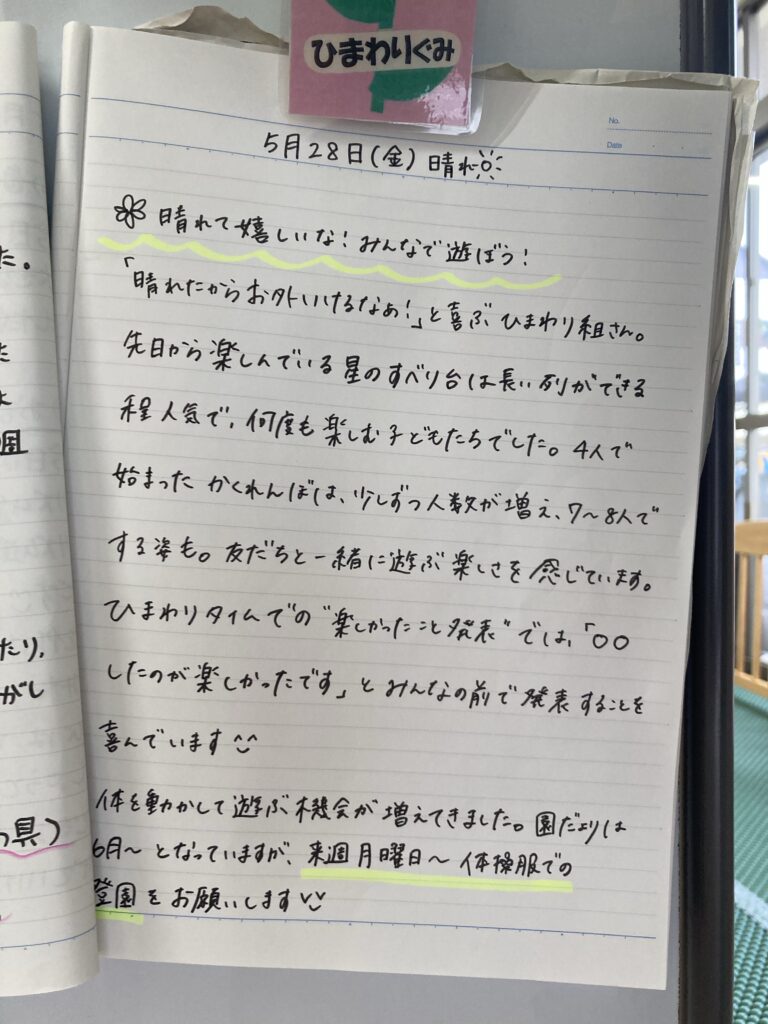 ひまわりぐみ
No.
Date
5月28日(金) 晴れ
晴れて嬉しいな!みんなで遊ぼう!
「晴れたからお外いけるなぁ!」と喜ぶひまわり組さん。
先日から楽しんでいる星のすべり台は長い列ができる
程人気で、何度も楽しむ子どもたちでした。4人で
始まったかくれんぼは、少しずつ人数が増え、7〜8人で
する姿も。友だちと一緒に遊ぶ楽しさを感じています。
ひまわりタイムでの"楽しかったこと発表"では、「〇〇
したのが楽しかったです」とみんなの前で発表することを
喜んでいます
体を動かして遊ぶ機会が増えてきました。園だよりは
6月〜となっていますが、来週月曜日〜体操服での
登園をお願いします
た。
た
よ
週
たり、
がし
具)